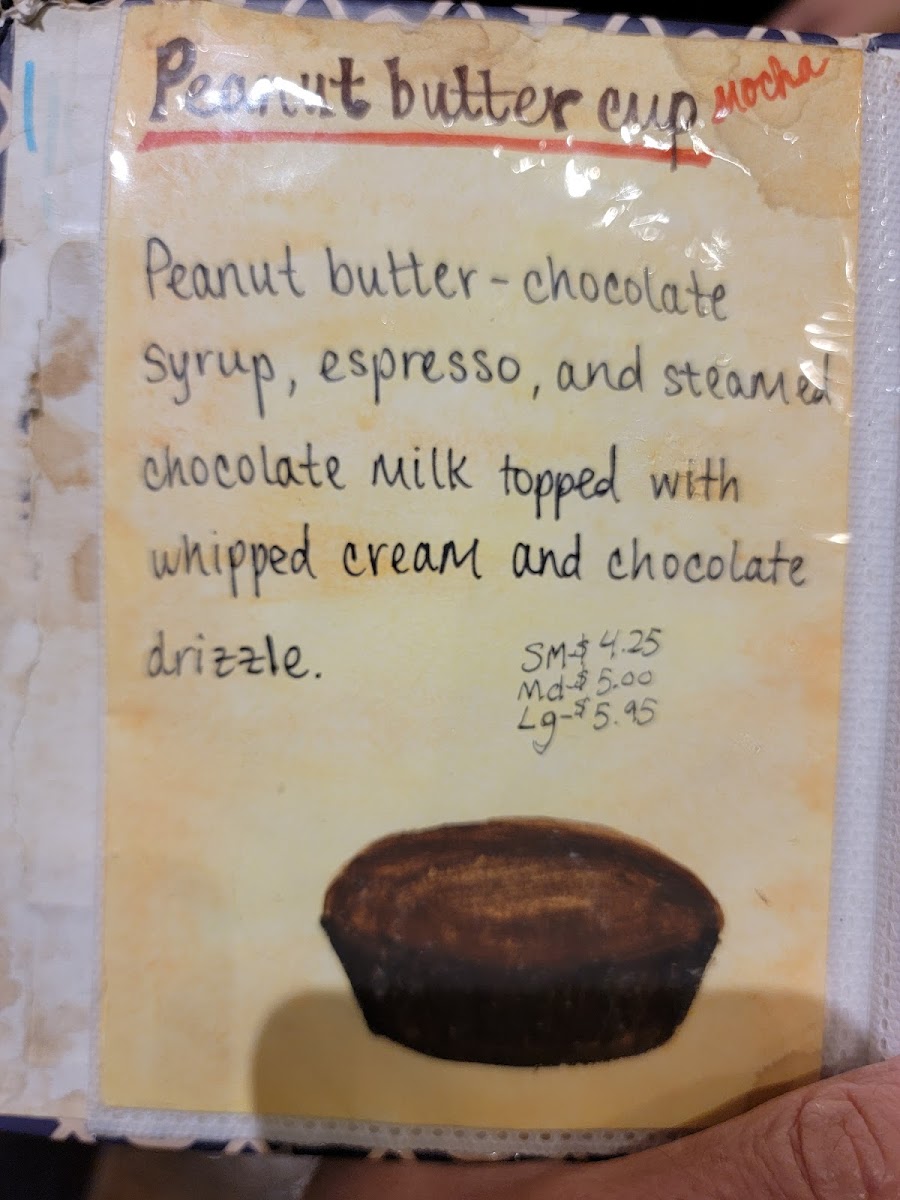 Peanut butter cup Mocha
Peanut butter - chocolate
syrup, espresso, and steamed
chocolate milk topped with
whipped cream and chocolate
drizzle.
SM-$4.25
Md-$5.00
Lg-$5.95